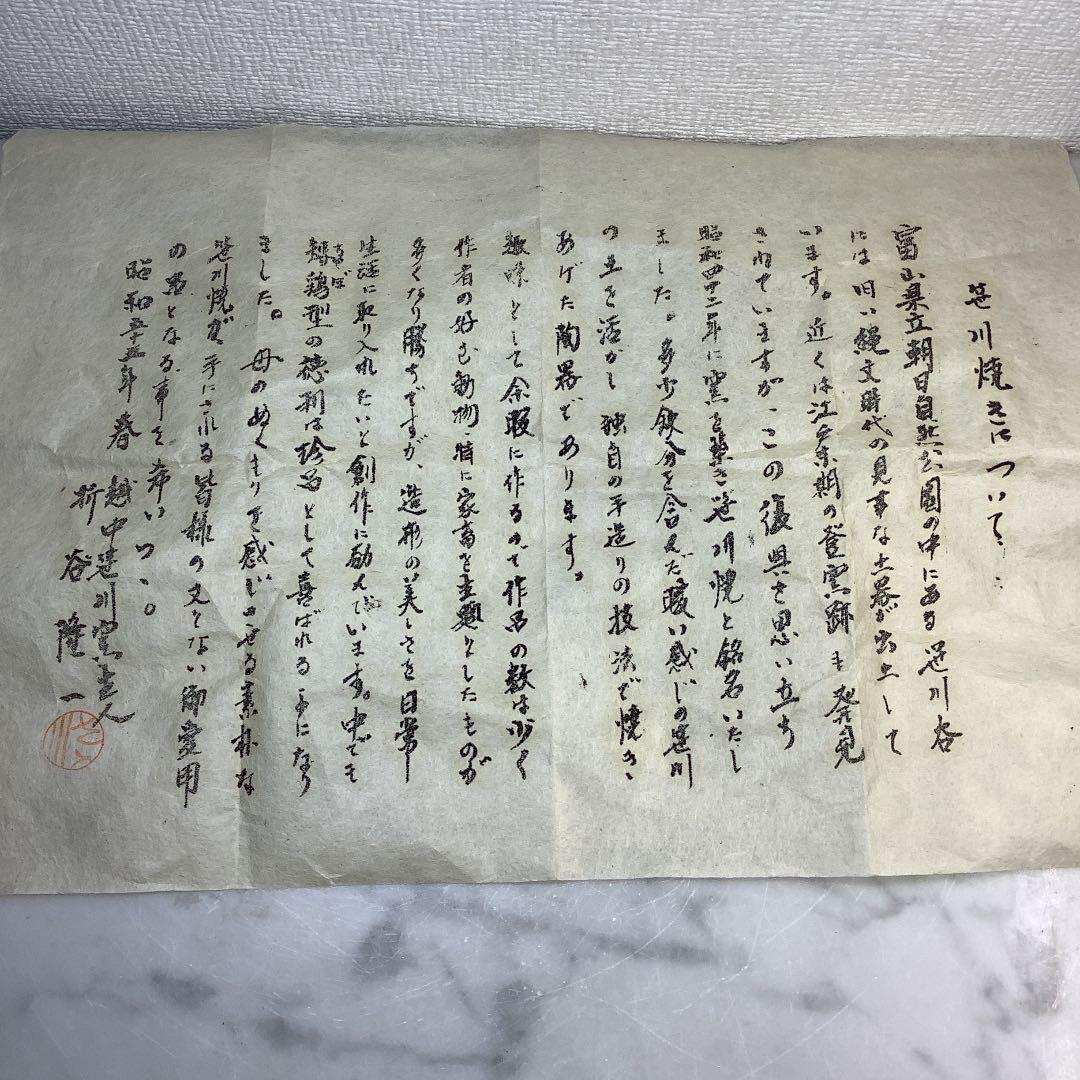 笹川焼きについて…
富山県立朝日自然公園の中にある 笹川谷
には 明い縄文時代の見事な土器が出土して
います。近くは江戸末期の登窯跡も発見
されていますが、この復興を思い立ち
昭和四十二年に窯を築き笹川焼と銘名いたし
ました。多少鉄分を含んだ暖い感じの笹川
の土を活かし 独自の手造りの技法で焼き
あげた陶器であります。
趣味として余暇に作るので作品の数は少く
作者の好む動物 特に家畜を主題としたものが
多くなり勝ちですが、造形の美しさを日常
生活に取り入れたいと創作に励んでいます。中でも
鶏型の徳利は珍品として喜ばれる事になり
ました。母のぬくもりを感じさせる素朴な
笹川焼が 手にされる皆様の又とない御愛用
の品となる事を希いつゝ。
昭和五十五年 春 越中笹川窯主人
折谷隆一